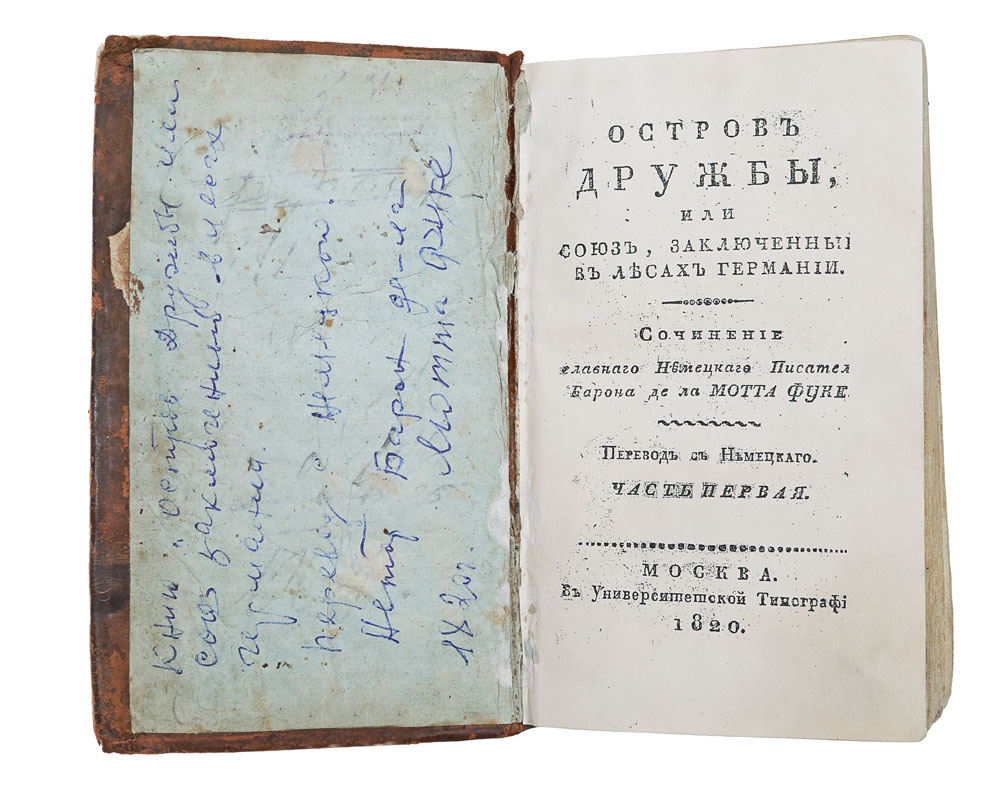 книга „остров Дружбы или
союз заключенный в лесах
Германии.
перевод с немецкой.
Автор Барон де-ла
Мотта Фуке
1820г.
ОСТРОВЪ
ДРУЖБЫ,
ИЛИ
СОЮЗЪ, ЗАКЛЮЧЕННЫЙ
ВЪ ЛѢСАХЪ ГЕРМАНІИ.
СОЧИНЕНІЕ
славнаго Нѣмецкаго Писател
Барона де ла МОТТА ФУКЕ
ПЕРЕВОДЪ съ НѢМЕЦКАГО.
ЧАСТЬ ПЕРВАЯ.
МОСКВА.
Въ Университетской Типографі
1820.